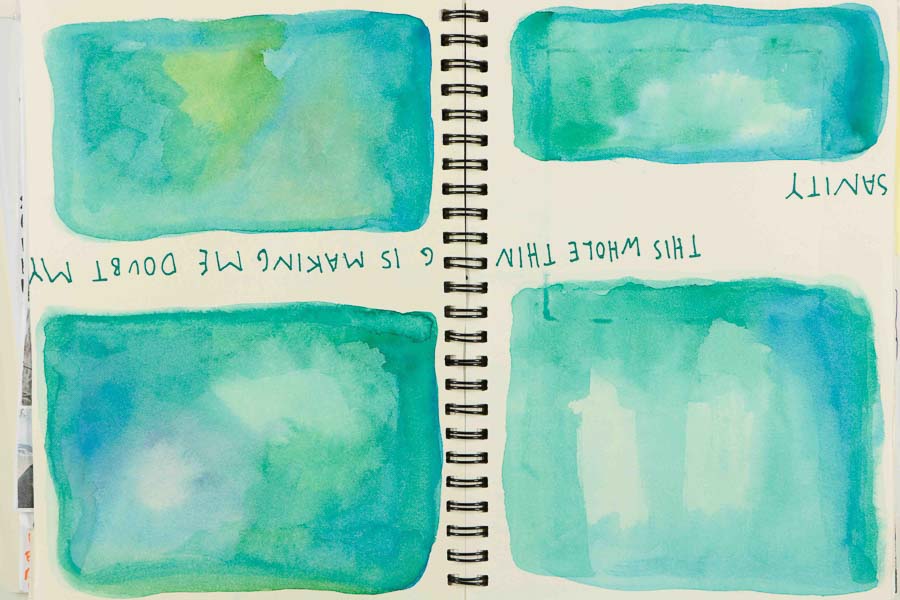 THIS WHOLE THING IS MAKING ME DOUBT MY
SANITY